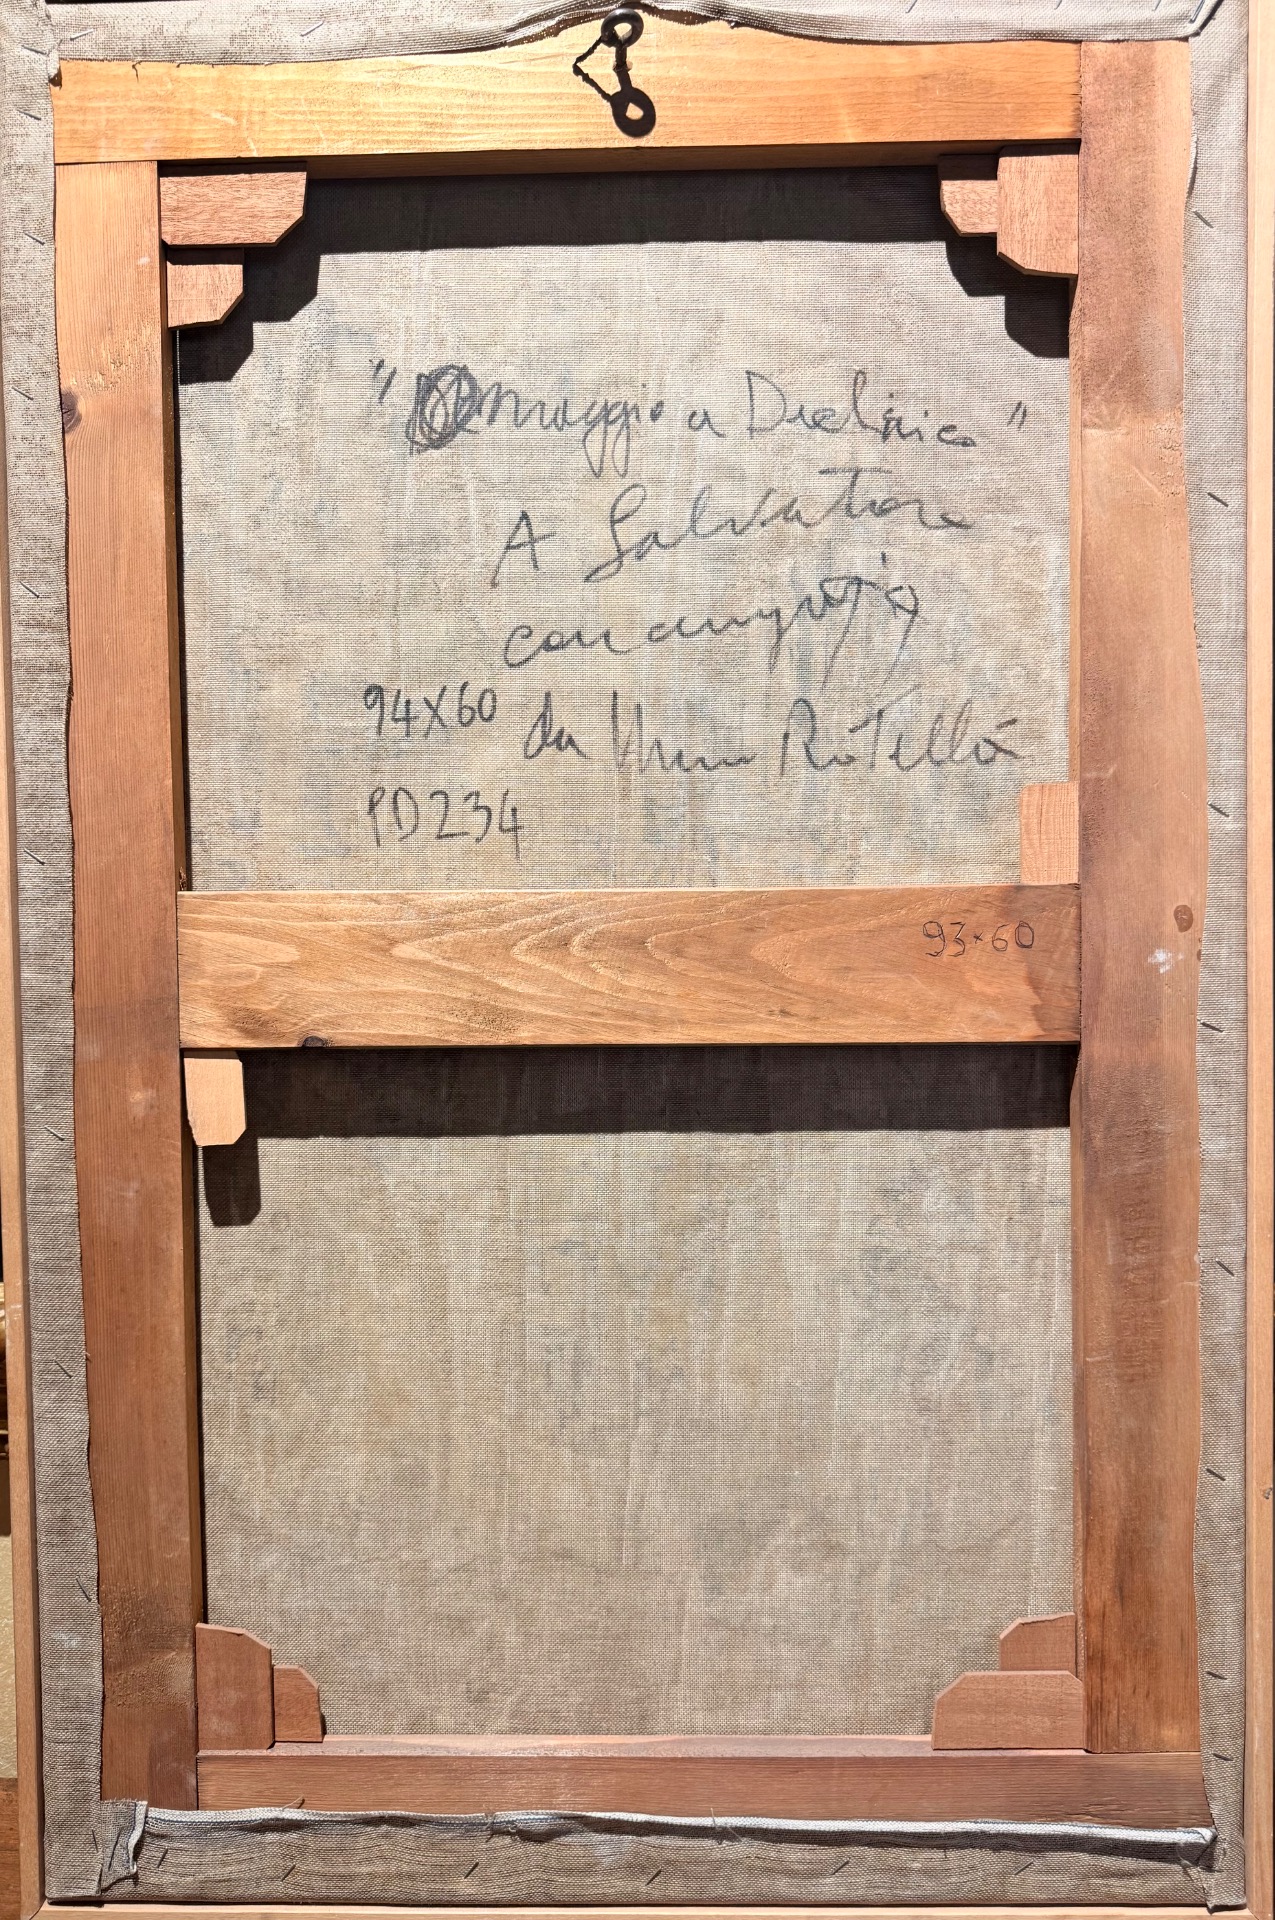 "Omaggio a Declinico"
A Salvatore
con amicizia
94x60 da Mimmo Rotella
PD234
93x60